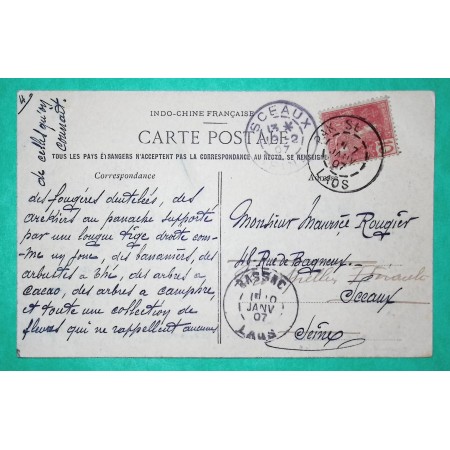 INDO-CHINE FRANÇAISE
CARTE POSTALE
TOUS LES PAYS ÉTRANGERS N'ACCEPTENT PAS LA CORRESPONDANCE AU RECTO, SE RENSEIGNER
Correspondance
des fougères dentelées, des
arequiers au panache supporté
par une longue tige droite com-
me un jonc, des bananiers, des
arbustes à thé, des arbres à
cacao, des arbres à camphre,
et toute une collection de
fleurs qui ne rappellent aucunes
de celles qu'on
connait.
Monsieur Maurice Rougier
48 Rue de Bagneux
Sceaux
Seine
SCEAUX
07
PAKSE
7
JANV
07
LAOS
BASSAC
10
JANV
07
LAOS